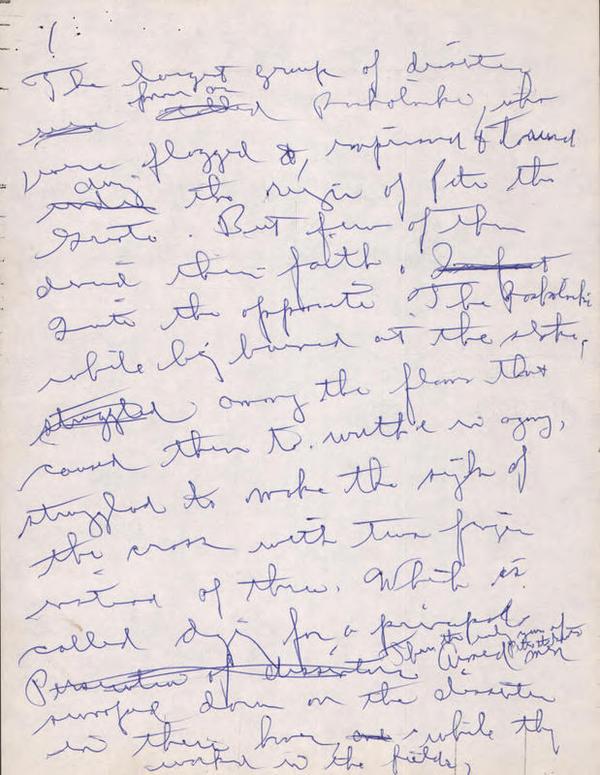 1
The largest group of dissenters
were from on called Raskolniki, who
were flogged &, imprisoned & tortured
under during the reign of Peter the
Great. But few of them
denied their faith. In fact
Quite the opposite. The Raskolniki
while being burned at the stake,
struggled among the flames that
caused them to writhe in agony,
struggled to make the sign of
the cross with two fingers
instead of three. Which is
called dying for a principle.
Persecution of dissenters Armed men
swooped down on the dissenters
in their homes and while they
worked in the fields,